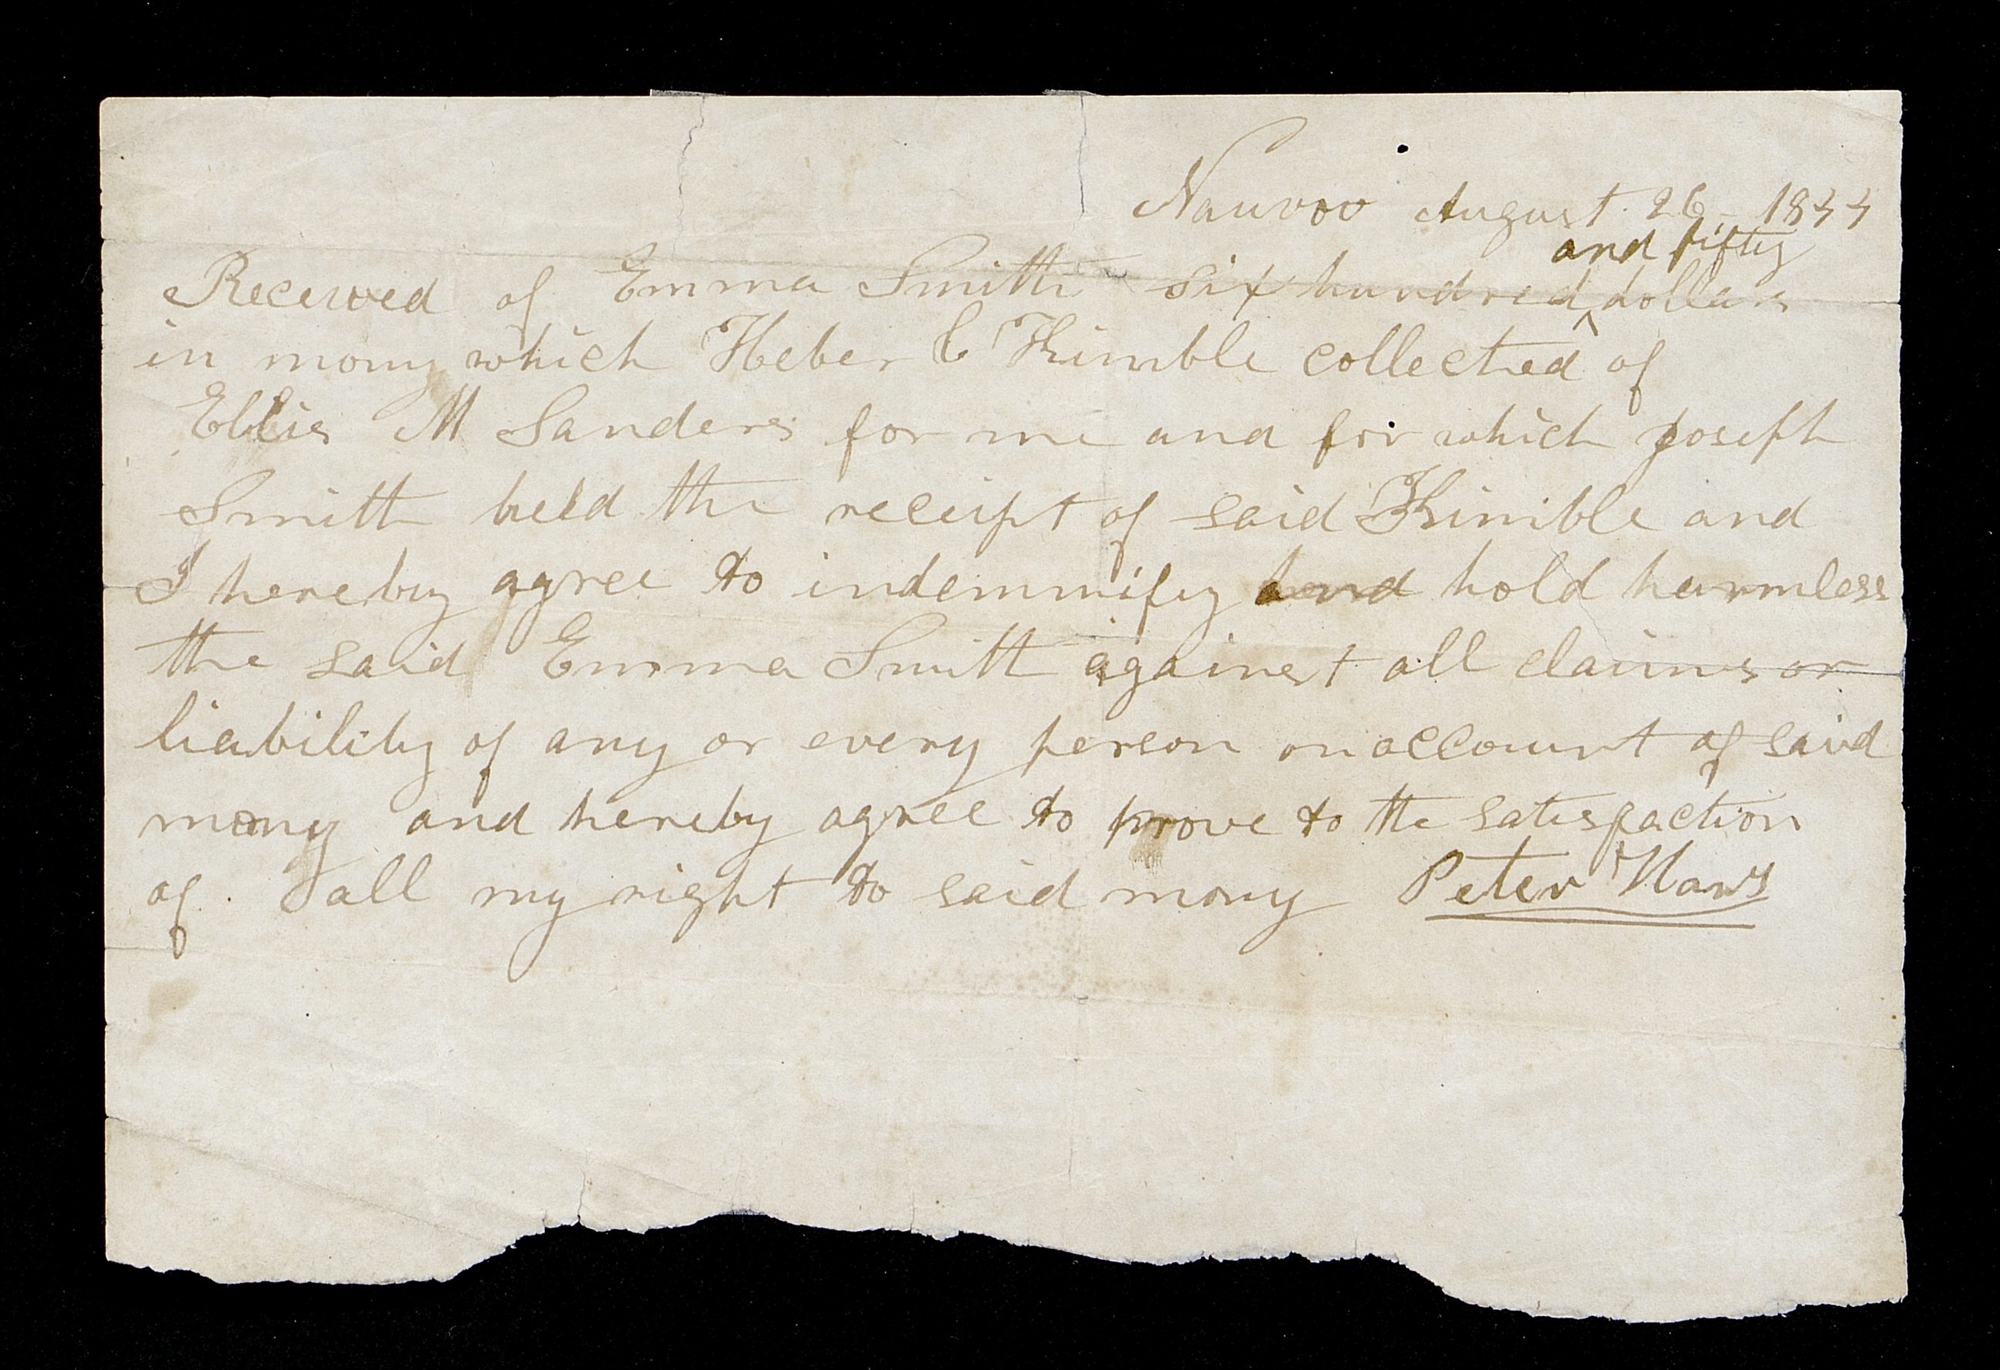 Nauvoo August 26 1844
and fifty
Received of Emma Smith six hundred ^ dollars
in mony which Heber C Kimble collected of
Ellis M Sanders for me and for which Joseph
Smith held the receipt of said Kimble and
I hereby agree to indemnify and hold harmless
the said Emma Smith against all claims or
liability of any or every person on account of said
mony and hereby agree to prove to the satisfaction
of all my right to said mony Peter Haws